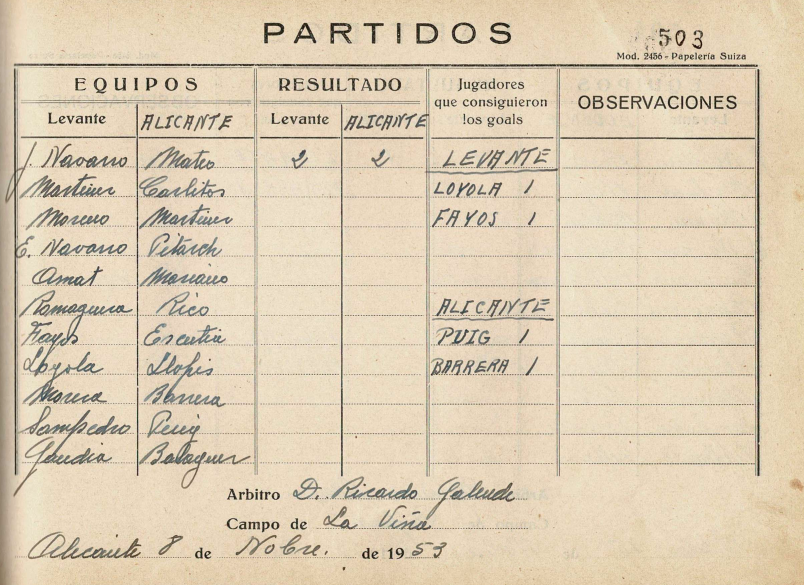 PARTIDOS
503
Mod. 2456 - Papelería Suiza
EQUIPOS RESULTADO Jugadores que consiguieron los goals OBSERVACIONES
Levante ALICANTE Levante ALICANTE
J. Navarro Mateo 2 2 LEVANTE
Martinez Carlitos LOYOLA 1
Moreno Martinez FAYOS 1
E. Navarro Pitarch
Amat Mariano
Romaguera Rico ALICANTE
Fayos Escutia PUIG 1
Loyola Llopis BARRERA 1
Morera Barrera
Sampedro Puig
Gandia Balaguer
Arbitro D. Ricardo Galende
Campo de La Viña
Alicante 8 de Nobre. de 1953